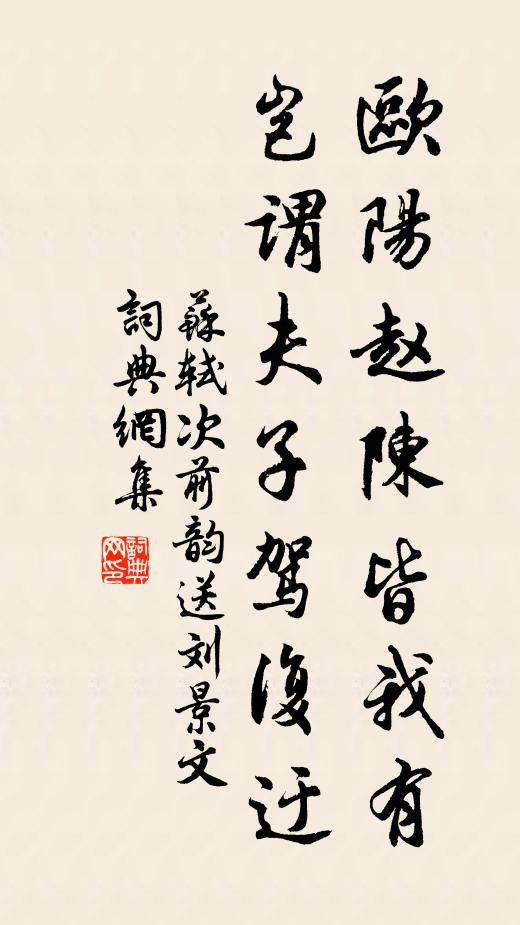 歐陽赵陳皆我有
岂謂夫子駕復迂
蘇轼次前韵送刘景文
詞典網集
詞典网印